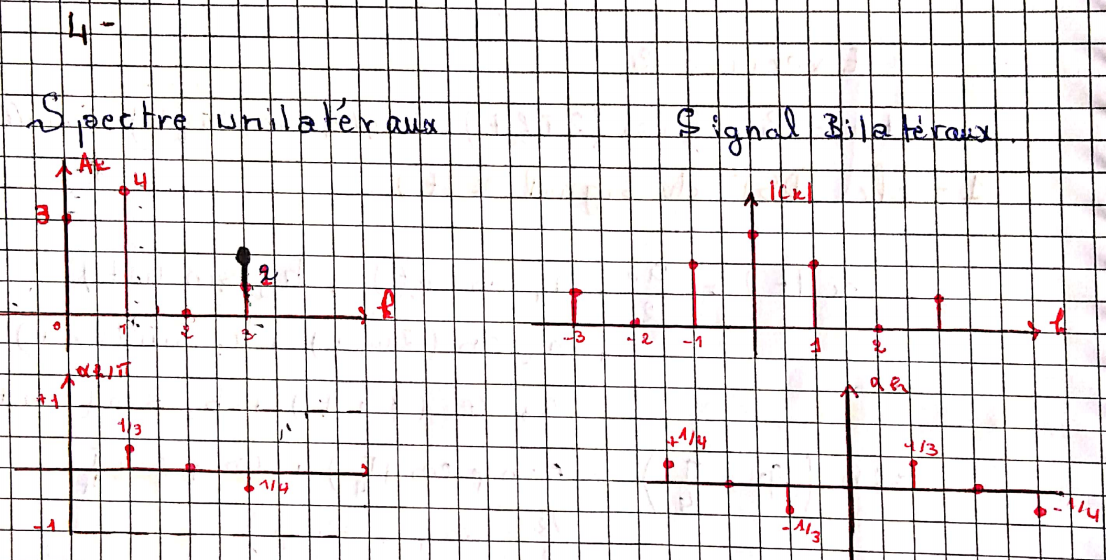 4-
Spectre unilatéraux
Signal Bilatéraux
Ak
4
3
2
f
0 1 2 3
|Ck|
-3 -2 -1 1 2
+1
1/3
-1/4
-1
+1/4
-1/3
1/3
-1/4